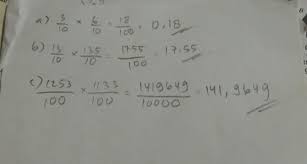 a) 3/10 × 6/10 = 18/100 = 0.18
b) 13/10 × 135/10 = 1755/100 = 17.55
c) 1253/100 × 1133/100 = 1419649/10000 = 141,9649